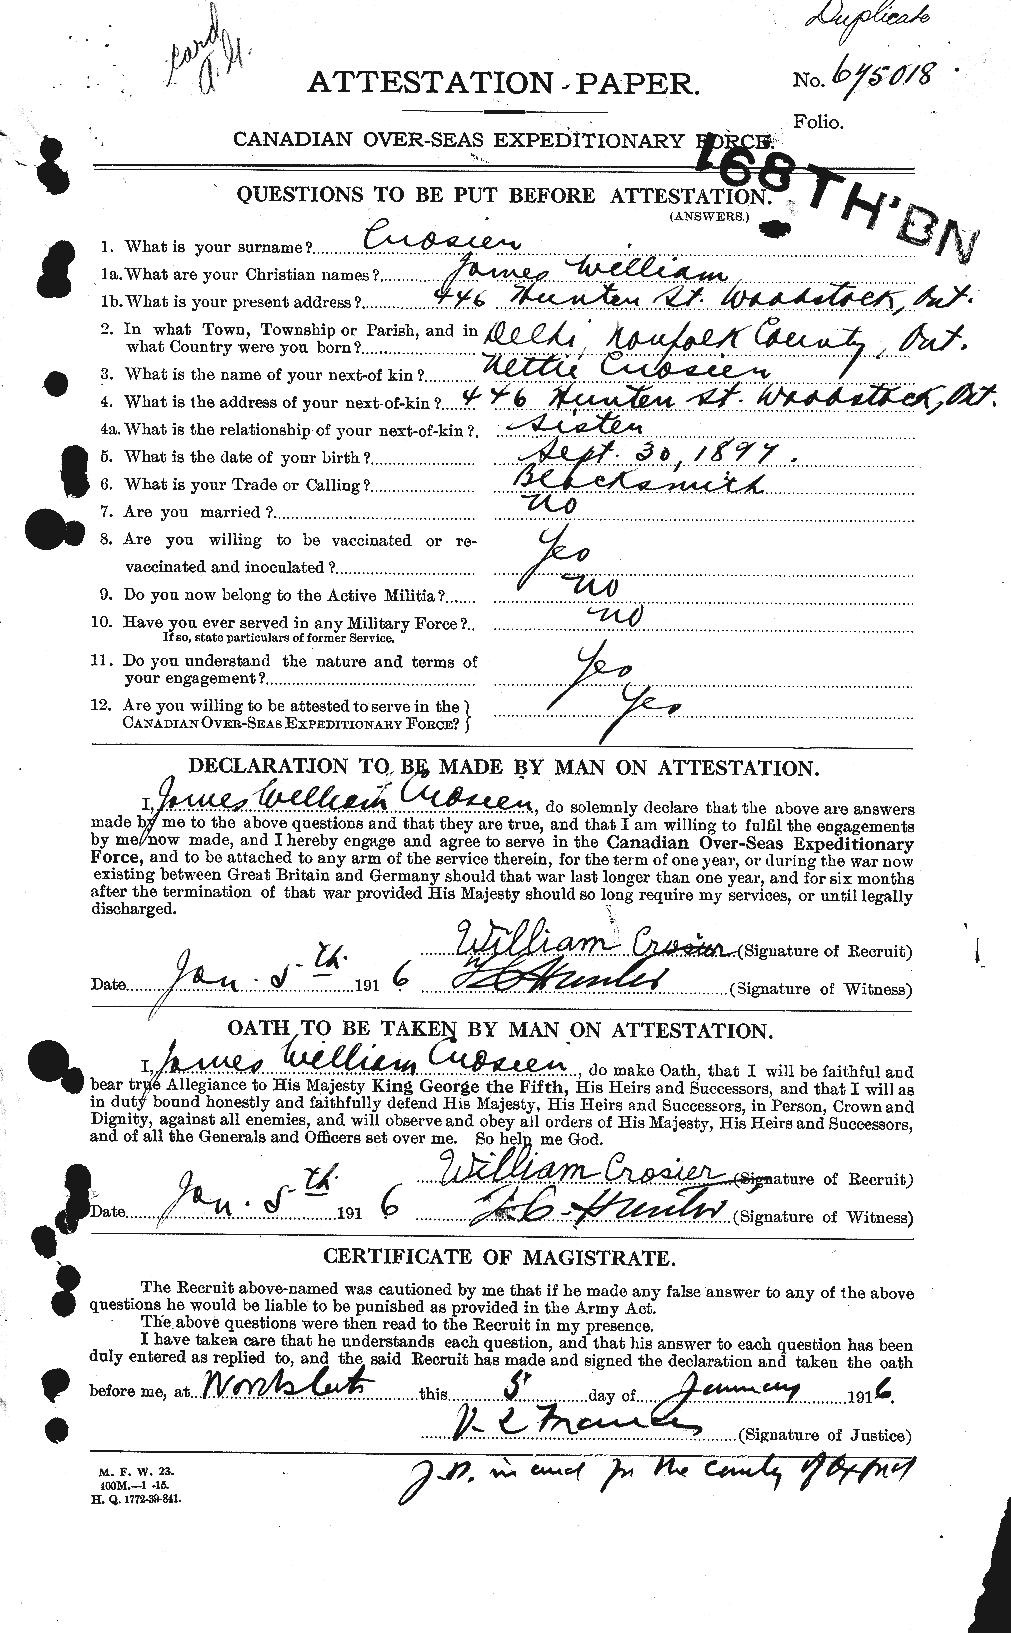 Duplicate
card
ATTESTATION PAPER.
No. 675018
Folio.
CANADIAN OVER-SEAS EXPEDITIONARY FORCE.
168TH'BN
QUESTIONS TO BE PUT BEFORE ATTESTATION.
(ANSWERS.)
1. What is your surname? Crosier
1a. What are your Christian names? James William
1b. What is your present address? 446 Hunter St. Woodstock, Ont.
2. In what Town, Township or Parish, and in what Country were you born? Delhi, Norfolk County, Ont.
3. What is the name of your next-of kin? Nettie Crosier
4. What is the address of your next-of-kin? 446 Hunter St. Woodstock, Ont.
4a. What is the relationship of your next-of-kin? Sister
5. What is the date of your birth? Sept. 30, 1897.
6. What is your Trade or Calling? Blacksmith
7. Are you married? No
8. Are you willing to be vaccinated or re-
vaccinated and inoculated? Yes
9. Do you now belong to the Active Militia? No
10. Have you ever served in any Military Force? No
If so, state particulars of former Service.
11. Do you understand the nature and terms of
your engagement? Yes
12. Are you willing to be attested to serve in the
CANADIAN OVER-SEAS EXPEDITIONARY FORCE? Yes
DECLARATION TO BE MADE BY MAN ON ATTESTATION.
I, James William Crosier, do solemnly declare that the above are answers
made by me to the above questions and that they are true, and that I am willing to fulfil the engagements
by me now made, and I hereby engage and agree to serve in the Canadian Over-Seas Expeditionary
Force, and to be attached to any arm of the service therein, for the term of one year, or during the war now
existing between Great Britain and Germany should that war last longer than one year, and for six months
after the termination of that war provided His Majesty should so long require my services, or until legally
discharged.
William Crosier (Signature of Recruit)
Date Jan. 5th. 1916 Hunter (Signature of Witness)
OATH TO BE TAKEN BY MAN ON ATTESTATION.
I, James William Crosier, do make Oath, that I will be faithful and
bear true Allegiance to His Majesty King George the Fifth, His Heirs and Successors, and that I will as
in duty bound honestly and faithfully defend His Majesty, His Heirs and Successors, in Person, Crown and
Dignity, against all enemies, and will observe and obey all orders of His Majesty, His Heirs and Successors,
and of all the Generals and Officers set over me. So help me God.
William Crosier (Signature of Recruit)
Date Jan. 5th. 1916 Hunter (Signature of Witness)
CERTIFICATE OF MAGISTRATE.
The Recruit above-named was cautioned by me that if he made any false answer to any of the above
questions he would be liable to be punished as provided in the Army Act.
The above questions were then read to the Recruit in my presence.
I have taken care that he understands each question, and that his answer to each question has been
duly entered as replied to, and the said Recruit has made and signed the declaration and taken the oath
before me, at Woodstock this 5 day of January 1916.
(Signature of Justice)
J.P. in and for the county of Oxford
M. F. W. 23.
400M.—1-15.
H. Q. 1772-39-841.